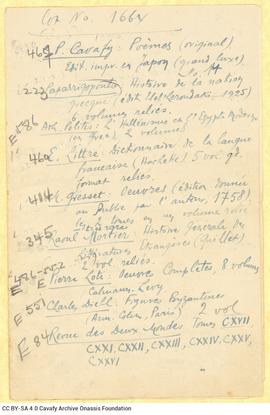 Cot No. 166v
465 P. Cavafy: Poèmes (original)
Edit. impr. en Japon (grand luxe)
No. 14
222 Paparrigopoulo: Histoire de la nation
grecque (édit. Eleftheroudaki, 1925)
6 volumes reliés.
E 586 Ath. Politis: L'Hellénisme et l'Egypte Moderne
(en grec) 2 volumes
462 E. Littré: Dictionnaire de la langue
française (Hachette) 5 vol. gd.
format reliés.
Gresset: Oeuvres (édition donnée
au Public par l'auteur, 1758).
2 tomes en un volume relié
345 Raoul Mortier: Histoire Générale des
Littératures Etrangères (Quillet)
2 vol. reliés.
E Pierre Loti: Oeuvres Complètes, 8 volumes
Calmann-Levy
E 551 Charles Diehl: Figures Byzantines
(Arm. Colin, Paris) 2 vol
E 84 Revue des Deux Mondes Tomes CXVII
CXXI, CXXII, CXXIII, CXXIV, CXXV,
CXXVI
CC BY-SA 4.0 Cavafy Archive Onassis Foundation